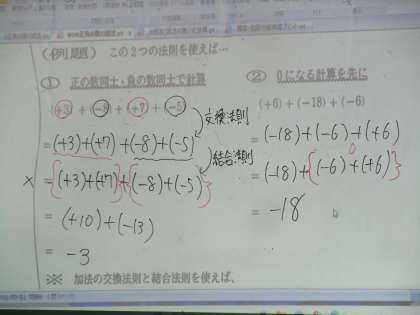 (例題) この2つの法則を使えば…
① 正の数同士・負の数同士で計算
(+3)+(-8)+(+7)+(-5)
交換法則
=(+3)+(+7)+(-8)+(-5)
結合法則
×={(+3)+(+7)}+{(-8)+(-5)}
=(+10)+(-13)
=-3
② 0になる計算を先に
(+6)+(-18)+(-6)
=(-18)+(-6)+(+6)
0
=(-18)+{(-6)+(+6)}
=-18
※ 加法の交換法則と結合法則を使えば、